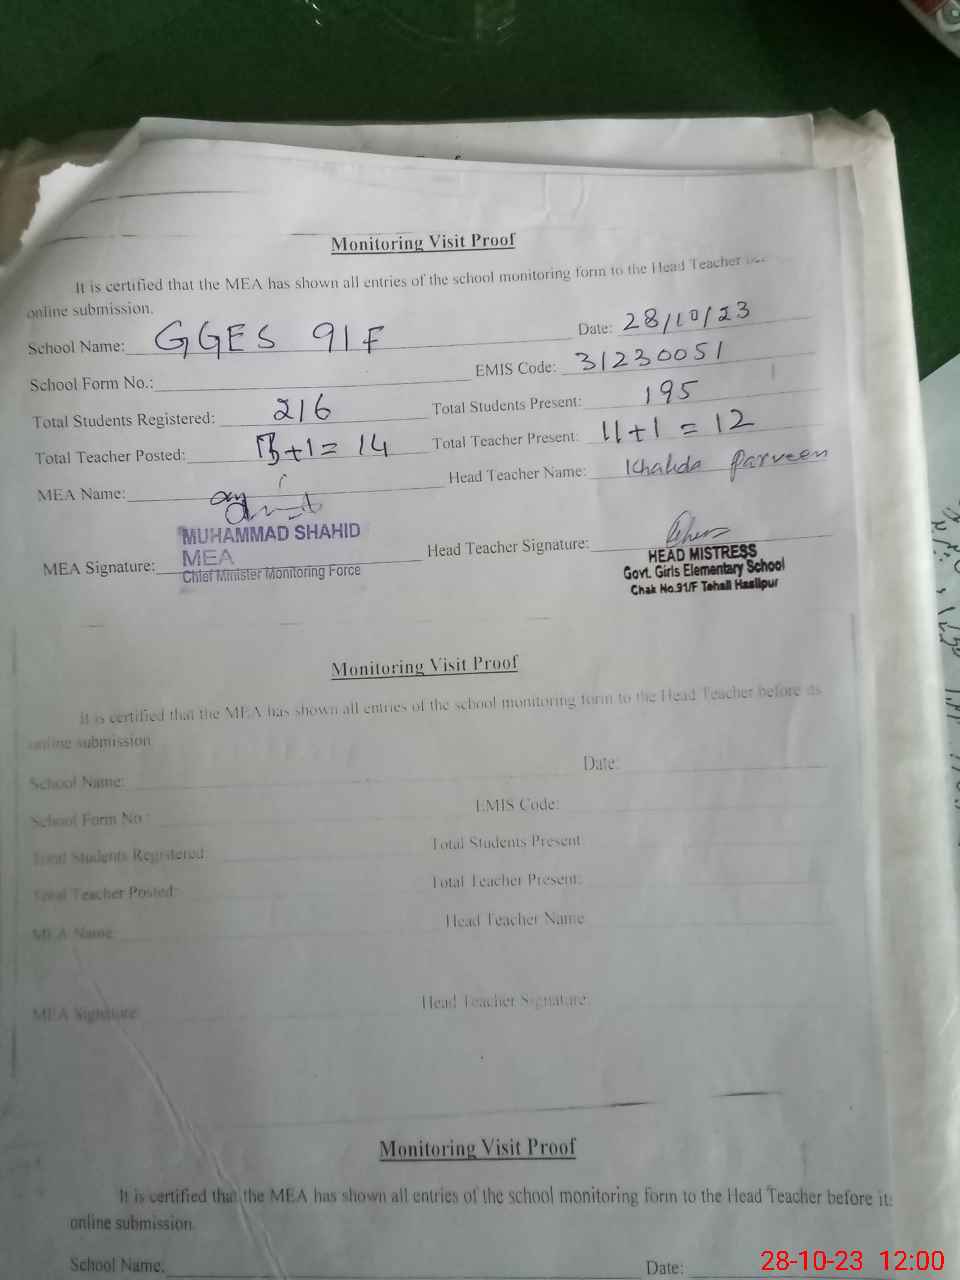 Monitoring Visit Proof
It is certified that the MEA has shown all entries of the school monitoring form to the Head Teacher
online submission.
School Name: GGES 91F Date: 28/10/23
School Form No.: EMIS Code: 31230051
Total Students Registered: 216 Total Students Present: 195
Total Teacher Posted: 13+1= 14 Total Teacher Present: 11+1 = 12
MEA Name: Head Teacher Name: Khalida Parveen
MUHAMMAD SHAHID
MEA
Chief Minister Monitoring Force
MEA Signature: Head Teacher Signature:
HEAD MISTRESS
Govt. Girls Elementary School
Chak No.91/F Tehsil Hasilpur
Monitoring Visit Proof
It is certified that the MEA has shown all entries of the school monitoring form to the Head Teacher before its
online submission
School Name: Date:
School Form No.: EMIS Code:
Total Students Registered: Total Students Present:
Total Teacher Posted: Total Teacher Present:
MEA Name: Head Teacher Name
MEA Signature: Head Teacher Signature:
Monitoring Visit Proof
It is certified that the MEA has shown all entries of the school monitoring form to the Head Teacher before its
online submission.
School Name: Date:
28-10-23 12:00